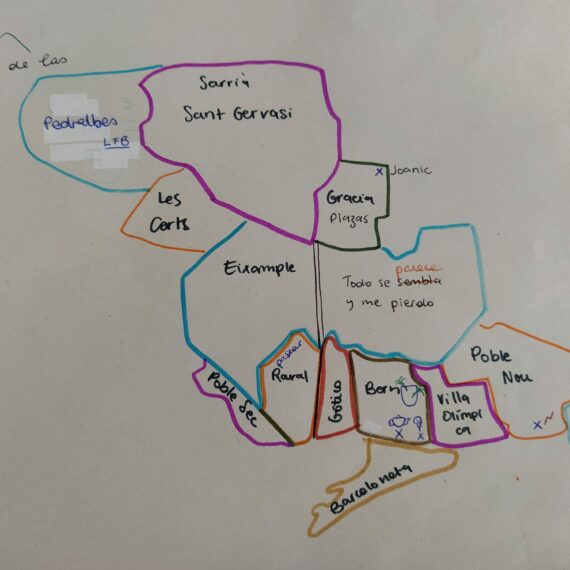 de las
Sarrià
Sant Gervasi
Pedralbes
LFB
Joanic
Les
Corts
Gracia
Plazas
Eixample
parece
Todo se sembla
y me pierdo
Poble
Nou
pasear
Raval
Poble Sec
Gótico
Born
Villa
Olímpi
ca
x
x x
x
Barceloneta